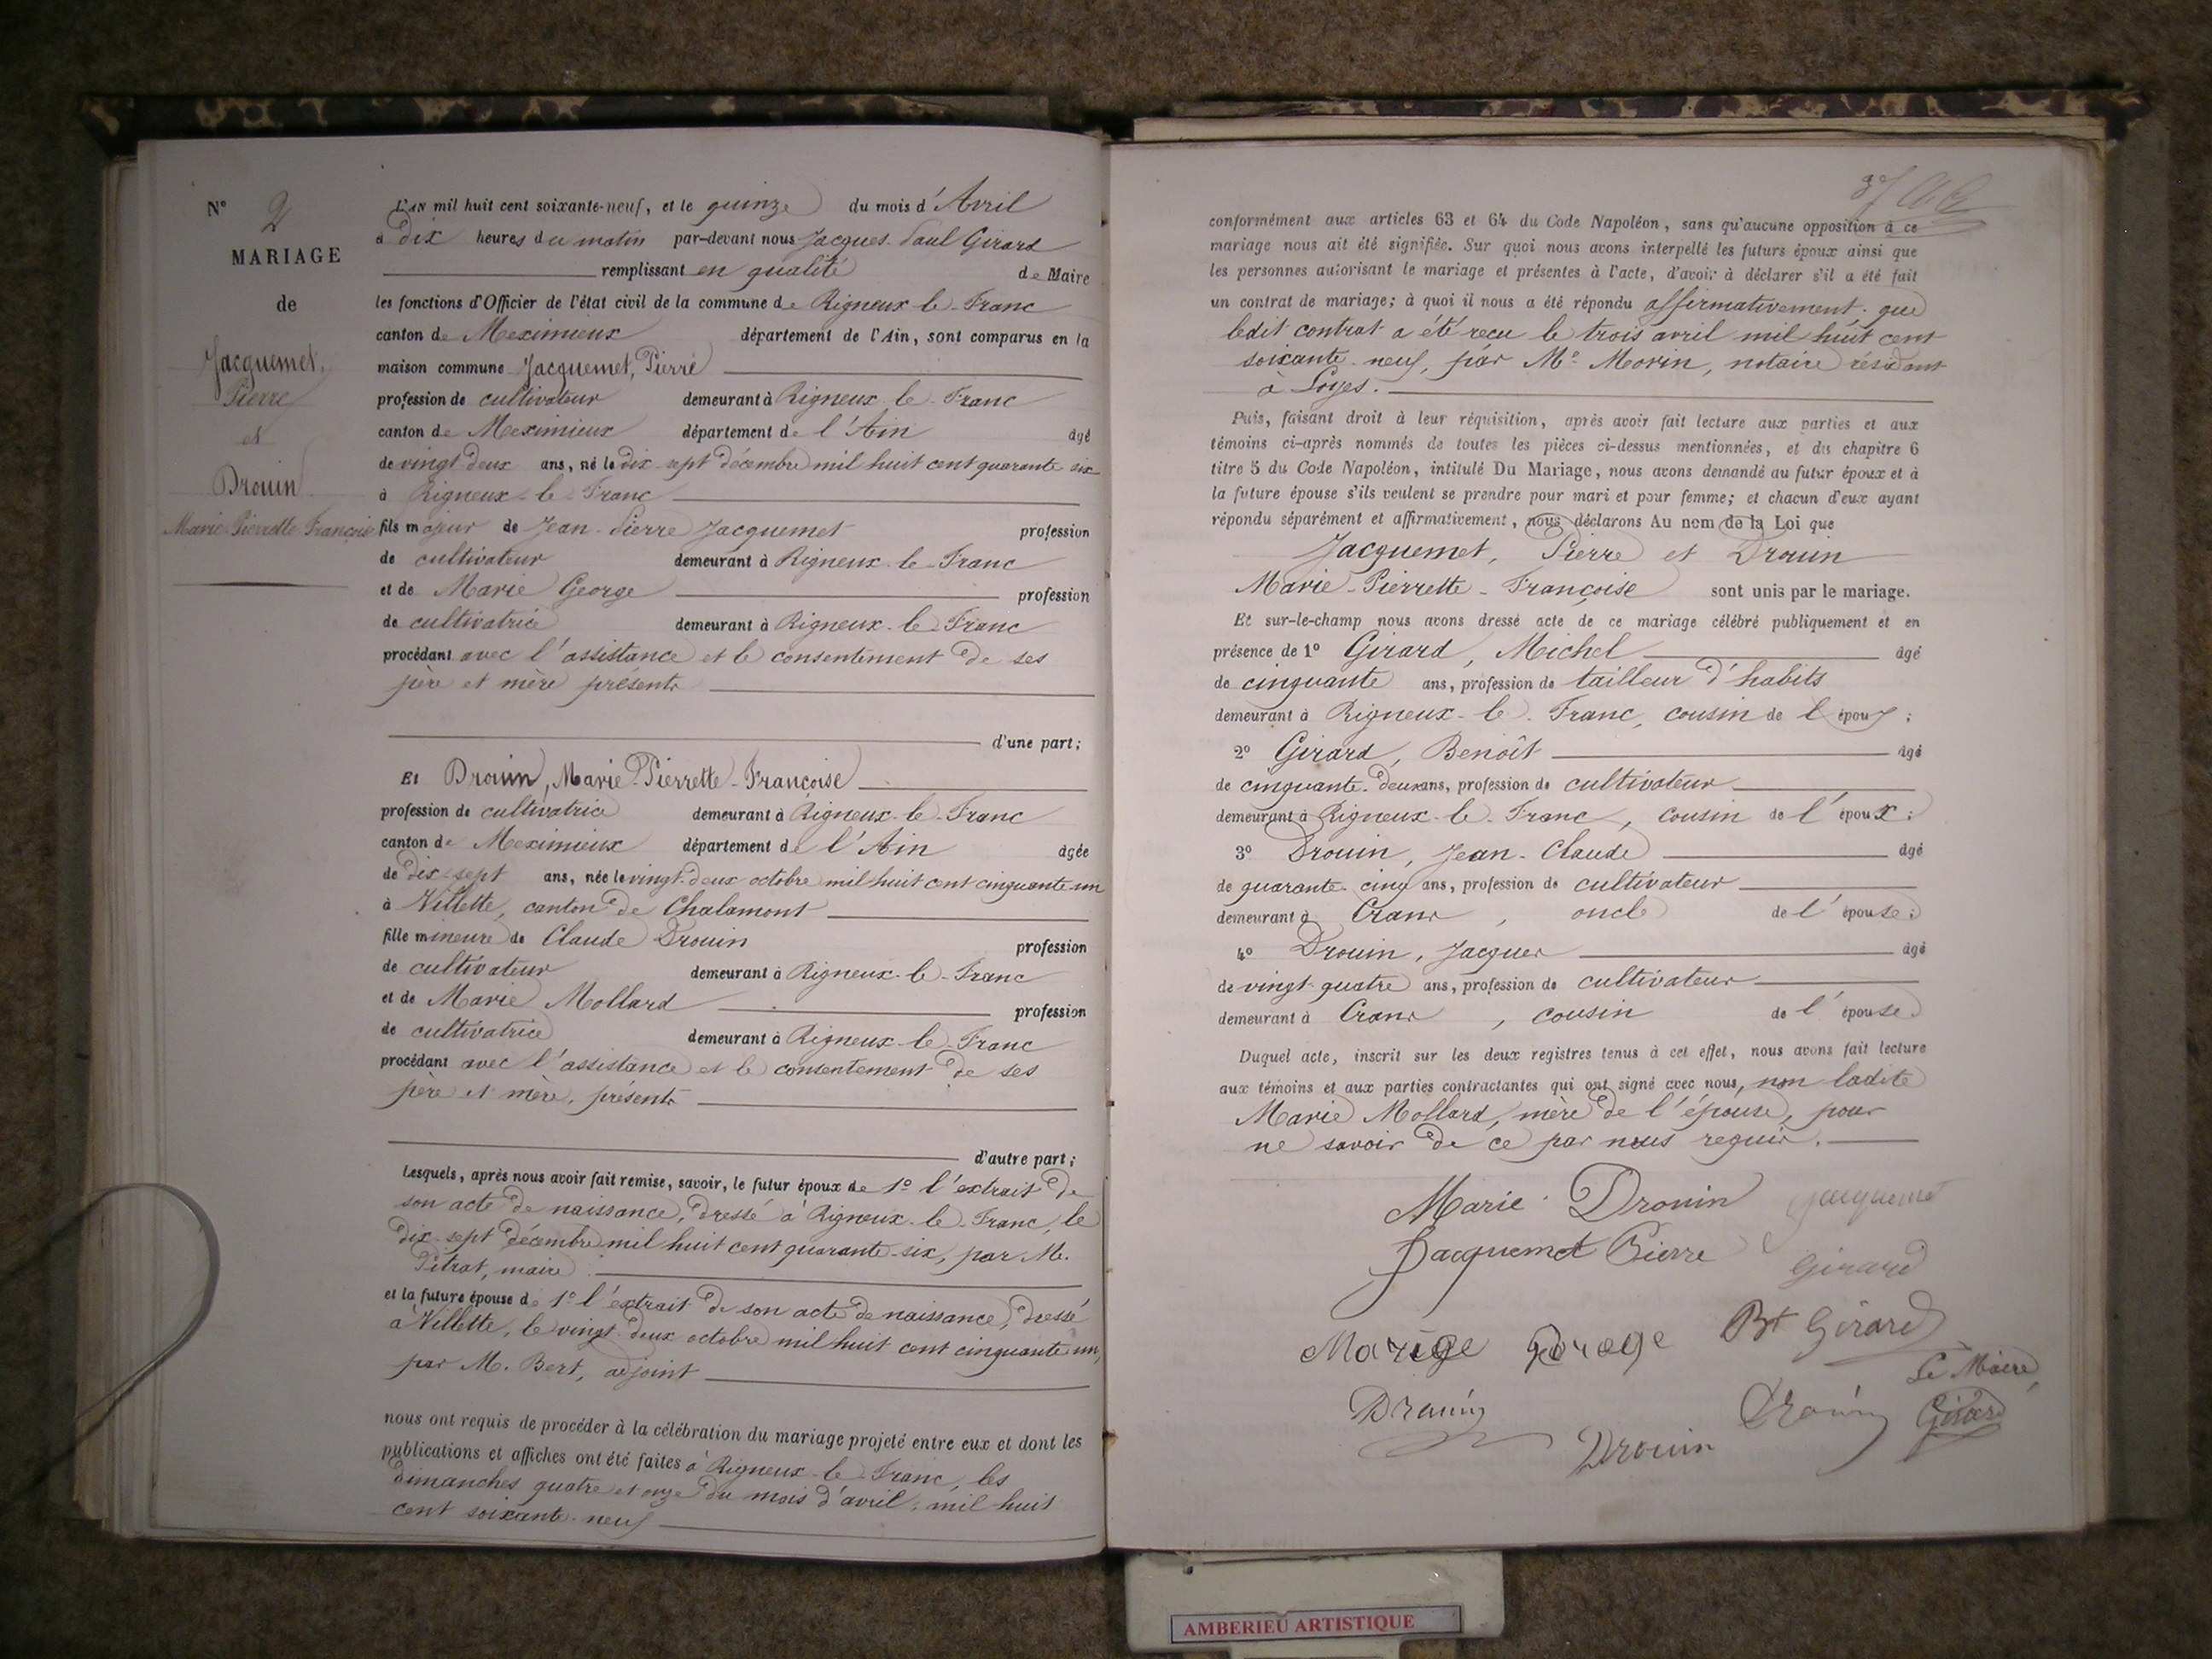 N° 2
MARIAGE
de
Jacquemet,
Pierre
et
Drouin
Marie-Pierrette-Françoise
L'AN mil huit cent soixante-neuf, et le quinze du mois d'Avril
à dix heures du matin par-devant nous Jacques-Paul Girard
remplissant en qualité de Maire
les fonctions d'Officier de l'état civil de la commune de Rigneux-le-Franc
canton de Meximieux département de l'Ain, sont comparus en la
maison commune Jacquemet, Pierre
profession de cultivateur demeurant à Rigneux-le-Franc
canton de Meximieux département de l'Ain âgé
de vingt deux ans, né le dix-sept décembre mil huit cent quarante-six
à Rigneux-le-Franc
fils majeur de Jean-Pierre Jacquemet profession
de cultivateur demeurant à Rigneux-le-Franc
et de Marie George profession
de cultivatrice demeurant à Rigneux-le-Franc
procédant avec l'assistance et le consentement de ses
père et mère présents
d'une part;
Et Drouin, Marie-Pierrette-Françoise
profession de cultivatrice demeurant à Rigneux-le-Franc
canton de Meximieux département de l'Ain âgée
de dix-sept ans, née le vingt-deux octobre mil huit cent cinquante-un
à Villette, canton de Chalamont
fille mineure de Claude Drouin profession
de cultivateur demeurant à Rigneux-le-Franc
et de Marie Mollard profession
de cultivatrice demeurant à Rigneux-le-Franc
procédant avec l'assistance et le consentement de ses
père et mère, présents
d'autre part;
Lesquels, après nous avoir fait remise, savoir, le futur époux de 1° l'extrait de
son acte de naissance, dressé à Rigneux-le-Franc, le
dix-sept décembre mil huit cent quarante-six, par M.
Pitrat, maire
et la future épouse de 1° l'extrait de son acte de naissance, dressé
à Villette, le vingt-deux octobre mil huit cent cinquante-un,
par M. Bert, adjoint
nous ont requis de procéder à la célébration du mariage projeté entre eux et dont les
publications et affiches ont été faites à Rigneux-le-Franc, les
dimanches quatre et onze du mois d'avril, mil huit
cent soixante-neuf
37
conformément aux articles 63 et 64 du Code Napoléon, sans qu'aucune opposition à ce
mariage nous ait été signifiée. Sur quoi nous avons interpellé les futurs époux ainsi que
les personnes autorisant le mariage et présentes à l'acte, d'avoir à déclarer s'il a été fait
un contrat de mariage; à quoi il nous a été répondu affirmativement, que
ledit contrat a été reçu le trois avril mil huit cent
soixante-neuf, par Me. Morin, notaire résidant
à Loyes.
Puis, faisant droit à leur réquisition, après avoir fait lecture aux parties et aux
témoins ci-après nommés de toutes les pièces ci-dessus mentionnées, et du chapitre 6
titre 5 du Code Napoléon, intitulé Du Mariage, nous avons demandé au futur époux et à
la future épouse s'ils veulent se prendre pour mari et pour femme; et chacun d'eux ayant
répondu séparément et affirmativement, nous déclarons Au nom de la Loi que
Jacquemet, Pierre et Drouin
Marie-Pierrette-Françoise sont unis par le mariage.
Et sur-le-champ nous avons dressé acte de ce mariage célébré publiquement et en
présence de 1° Girard, Michel âgé
de cinquante ans, profession de tailleur d'habits
demeurant à Rigneux-le-Franc, cousin de l'époux;
2° Girard, Benoît âgé
de cinquante-deux ans, profession de cultivateur
demeurant à Rigneux-le-Franc, cousin de l'époux;
3° Drouin, Jean-Claude âgé
de quarante-cinq ans, profession de cultivateur
demeurant à Crans, oncle de l'épouse;
4° Drouin, Jacques âgé
de vingt-quatre ans, profession de cultivateur
demeurant à Crans, cousin de l'épouse
Duquel acte, inscrit sur les deux registres tenus à cet effet, nous avons fait lecture
aux témoins et aux parties contractantes qui ont signé avec nous, non ladite
Marie Mollard, mère de l'épouse, pour
ne savoir de ce par nous requis.
Marie Drouin Jacquemet
Jacquemet Pierre Girard
Mariee Gorage Bt Girard
Le Maire,
Drouin Drouin Girard
Drouin
AMBERIEU ARTISTIQUE